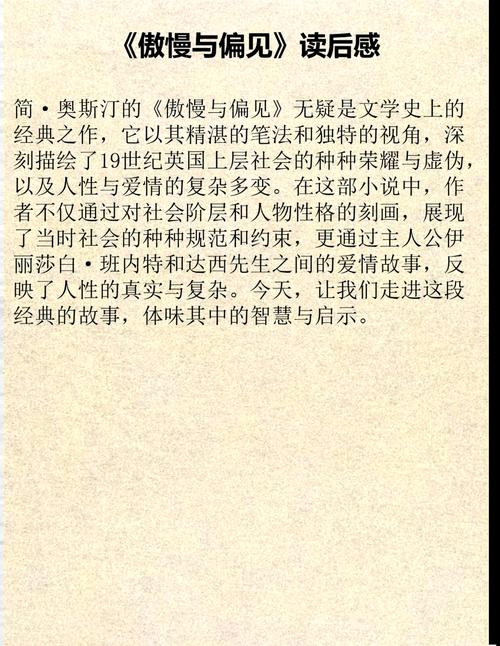 《傲慢与偏见》读后感
简·奥斯汀的《傲慢与偏见》无疑是文学史上的
经典之作，它以其精湛的笔法和独特的视角，深
刻描绘了19世纪英国上层社会的种种荣耀与虚伪，
以及人性与爱情的复杂多变。在这部小说中，作
者不仅通过对社会阶层和人物性格的刻画，展现
了当时社会的种种规范和约束，更通过主人公伊
丽莎白·班内特和达西先生之间的爱情故事，反
映了人性的真实与复杂。今天，让我们走进这段
经典的故事，体味其中的智慧与启示。